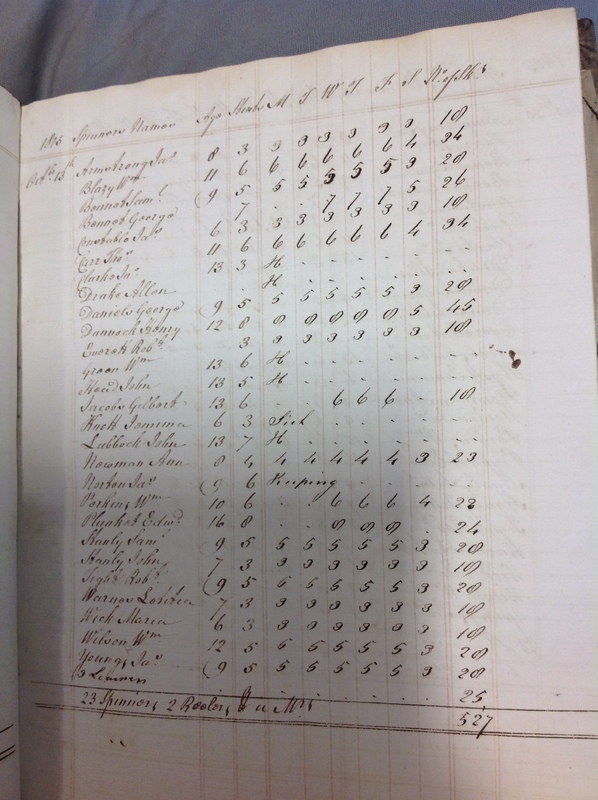 1815 Spinners Names Age Stints M T W T F S No. of Sks
Octr. 13th Armstrong Jas 8 3 3 3 3 3 3 3 18
Blazy Wm 11 6 6 6 6 6 6 4 34
Bennet Saml. 9 5 5 5 5 5 5 3 28
Bennet George 7 . . 7 7 7 5 26
Constable Jas 6 3 3 3 3 3 3 3 18
Carr Thos 11 6 6 6 6 6 6 4 34
Clarke Jno 13 3 H . . . . . . .
Drake Allen . H . . . . . . .
Daniels George 9 5 5 5 5 5 5 3 28
Dannock Henry 12 8 8 8 8 8 8 5 45
Everett Robt. 3 3 3 3 3 3 3 18
Green Wm 13 6 H . . . . . . .
John 13 5 H . . . . . . .
Jacobs Gilbert 13 6 . . 6 6 6 . 18
Jemima 6 3 Sick . . . . . .
Lubbock John 13 7 H . . . . . . .
Newman Ann 8 4 4 4 4 4 4 3 23
Norton Jas 9 6 Keeping . . . . .
Perkins Wm 10 6 . . 6 6 6 4 22
Plunket Edwd. 16 8 . . 8 8 8 . 24
Stanly Saml 9 5 5 5 5 5 5 3 28
Stanly John 7 3 3 3 3 3 3 3 18
Tight Robt. 9 5 5 5 5 5 5 3 28
Warnes 7 3 3 3 3 3 3 3 18
Wick Maria 6 3 3 3 3 3 3 3 18
Wilson Wm 12 5 5 5 5 5 5 3 28
Youngs Jas 9 5 5 5 5 5 5 3 28
3 Learners . . . . . 25
23 Spinners 2 Reelers & a Mrs 527